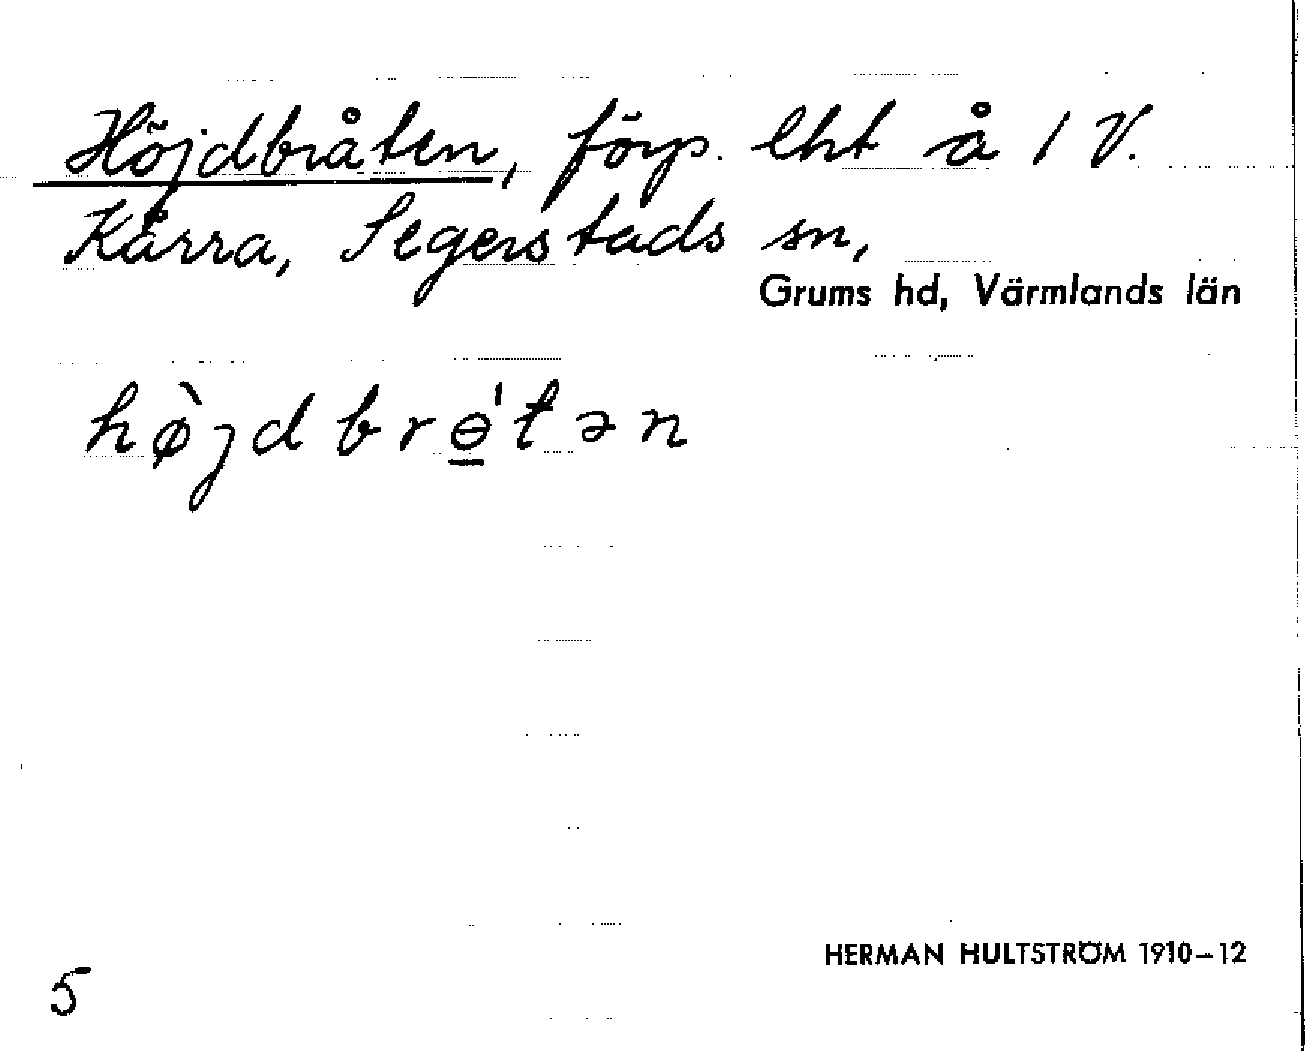 Höjdbråten, förp. lht å 1 V.
Kårra, Segerstads sn,
Grums hd, Värmlands län
hø̀jdbrɵ̠̍tən
HERMAN HULTSTRÖM 1910–12
5